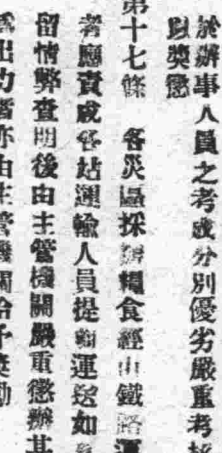 於辦事人員之考成分別優劣嚴重考核
以獎懲
第十七條　各災區採辦糧食經由鐵路運
者應責成各站運輸人員提前運送如
留情弊查明後由主管機關嚴重懲辦其
出力者亦由主管機關給予獎勵